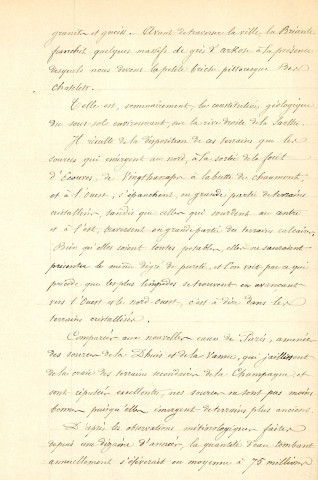 granits et gneiss. Avant de traverser la ville, la Briante
franchit quelques massifs de grès d'arkose à la présence
desquels nous devons la petite brèche pittoresque des
Châtelets.
Telle est, sommairement, la constitution géologique
du sous-sol environnant, sur la rive droite de la Sarthe.
Il résulte de la disposition de ces terrains que les
sources qui émergent au nord, à la sortie de la forêt
d'Ecouves, de Vingthanaps à la butte de Chaumont,
et à l'Ouest, s'épanchent, en grande partie de terrains
cristallins, tandis que celles qui sourdent au centre
et à l'est, traversent en grande partie des terrains calcaires.
Bien qu'elles soient toutes potables, elles ne sauraient
présenter le même degré de pureté, et l'on voit par ce qui
précède, que les plus limpides se trouvent en avançant
vers l'Ouest et le nord-ouest, c'est à dire dans les
terrains cristallins.
Comparées aux nouvelles eaux de Paris, amenées
des sources de la Dhuis et de la Vanne, qui jaillissent
de la craie des terrains secondaires de la Champagne et
sont réputées excellentes, nos sources ne sont pas moins
bonnes puisqu'elles émergent de terrains plus anciens.
D'après les observations météorologiques faites
depuis une dizaine d'années, la quantité d'eau tombant
annuellement s'élèverait en moyenne à 75 millions